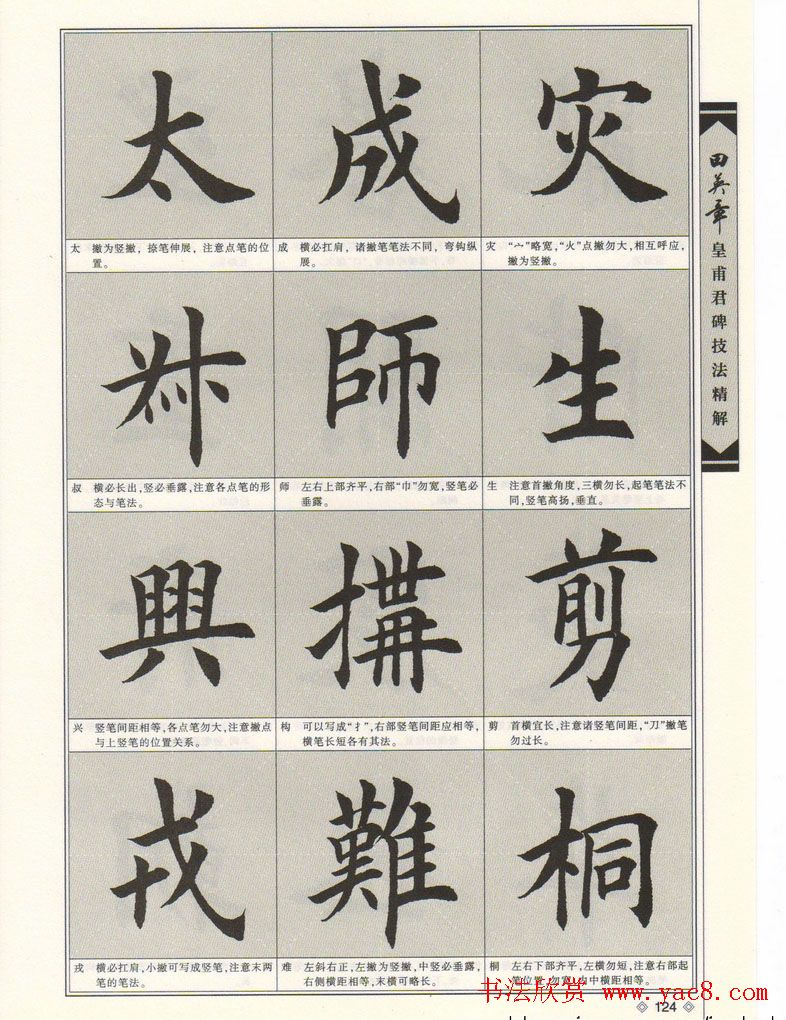 太 成 灾
太 撇为竖撇，捺笔伸展，注意点笔的位
置。
成 横必扛肩，诸撇笔笔法不同，弯钩纵
展。
灾 “宀”略宽，“火”点撇勿大，相互呼应，
撇为竖撇。
叔 師 生
叔 横必长出，竖必垂露，注意各点笔的形
态与笔法。
师 左右上部齐平，右部“巾”勿宽，竖笔必
垂露。
生 注意首撇角度，三横勿长，起笔笔法不
同，竖笔高扬，垂直。
興 搆 剪
兴 竖笔间距相等，各点笔勿大，注意撇点
与上竖笔的位置关系。
构 可以写成“扌”，右部竖笔间距应相等，
横笔长短各有其法。
剪 首横宜长，注意诸竖笔间距，“刀”撇笔
勿过长。
戎 難 桐
戎 横必扛肩，小撇可写成竖笔，注意末两
笔的笔法。
难 左斜右正，左撇为竖撇，中竖必垂露，
右侧横距相等，末横可略长。
桐 左右下部齐平，左横勿短，注意右部起
笔位置，勿宽，内中横距相等。
田英章
皇甫君碑技法精解
书法欣赏 www.yac8.com
124